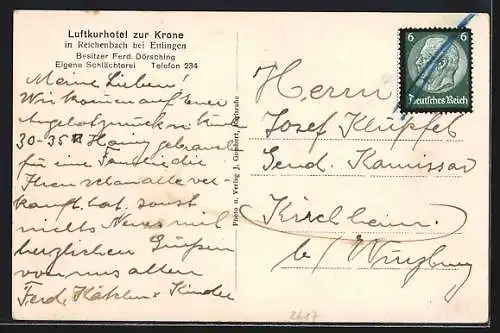 Luftkurhotel zur Krone
in Reichenbach bei Etlingen
Besitzer Ferd. Dörsching
Eigene Schlächterei Telefon 234
Meine Lieben!
Wir kommen auf euer
Angebot zurück
30-35 Honig
für eine Familie die
Ihren schon alle ver-
kauft hat. sonst
nichts Neues mit
herzlichen Grüßen
von uns allen
Ferd, Kätchen u Kinder
Photo u. Verlag J. Karlsruhe
6 6
Deutsches Reich
Herrn
Josef Klüpfel
Gend. Komissar
Kirchheim
b/ Würzburg
2617